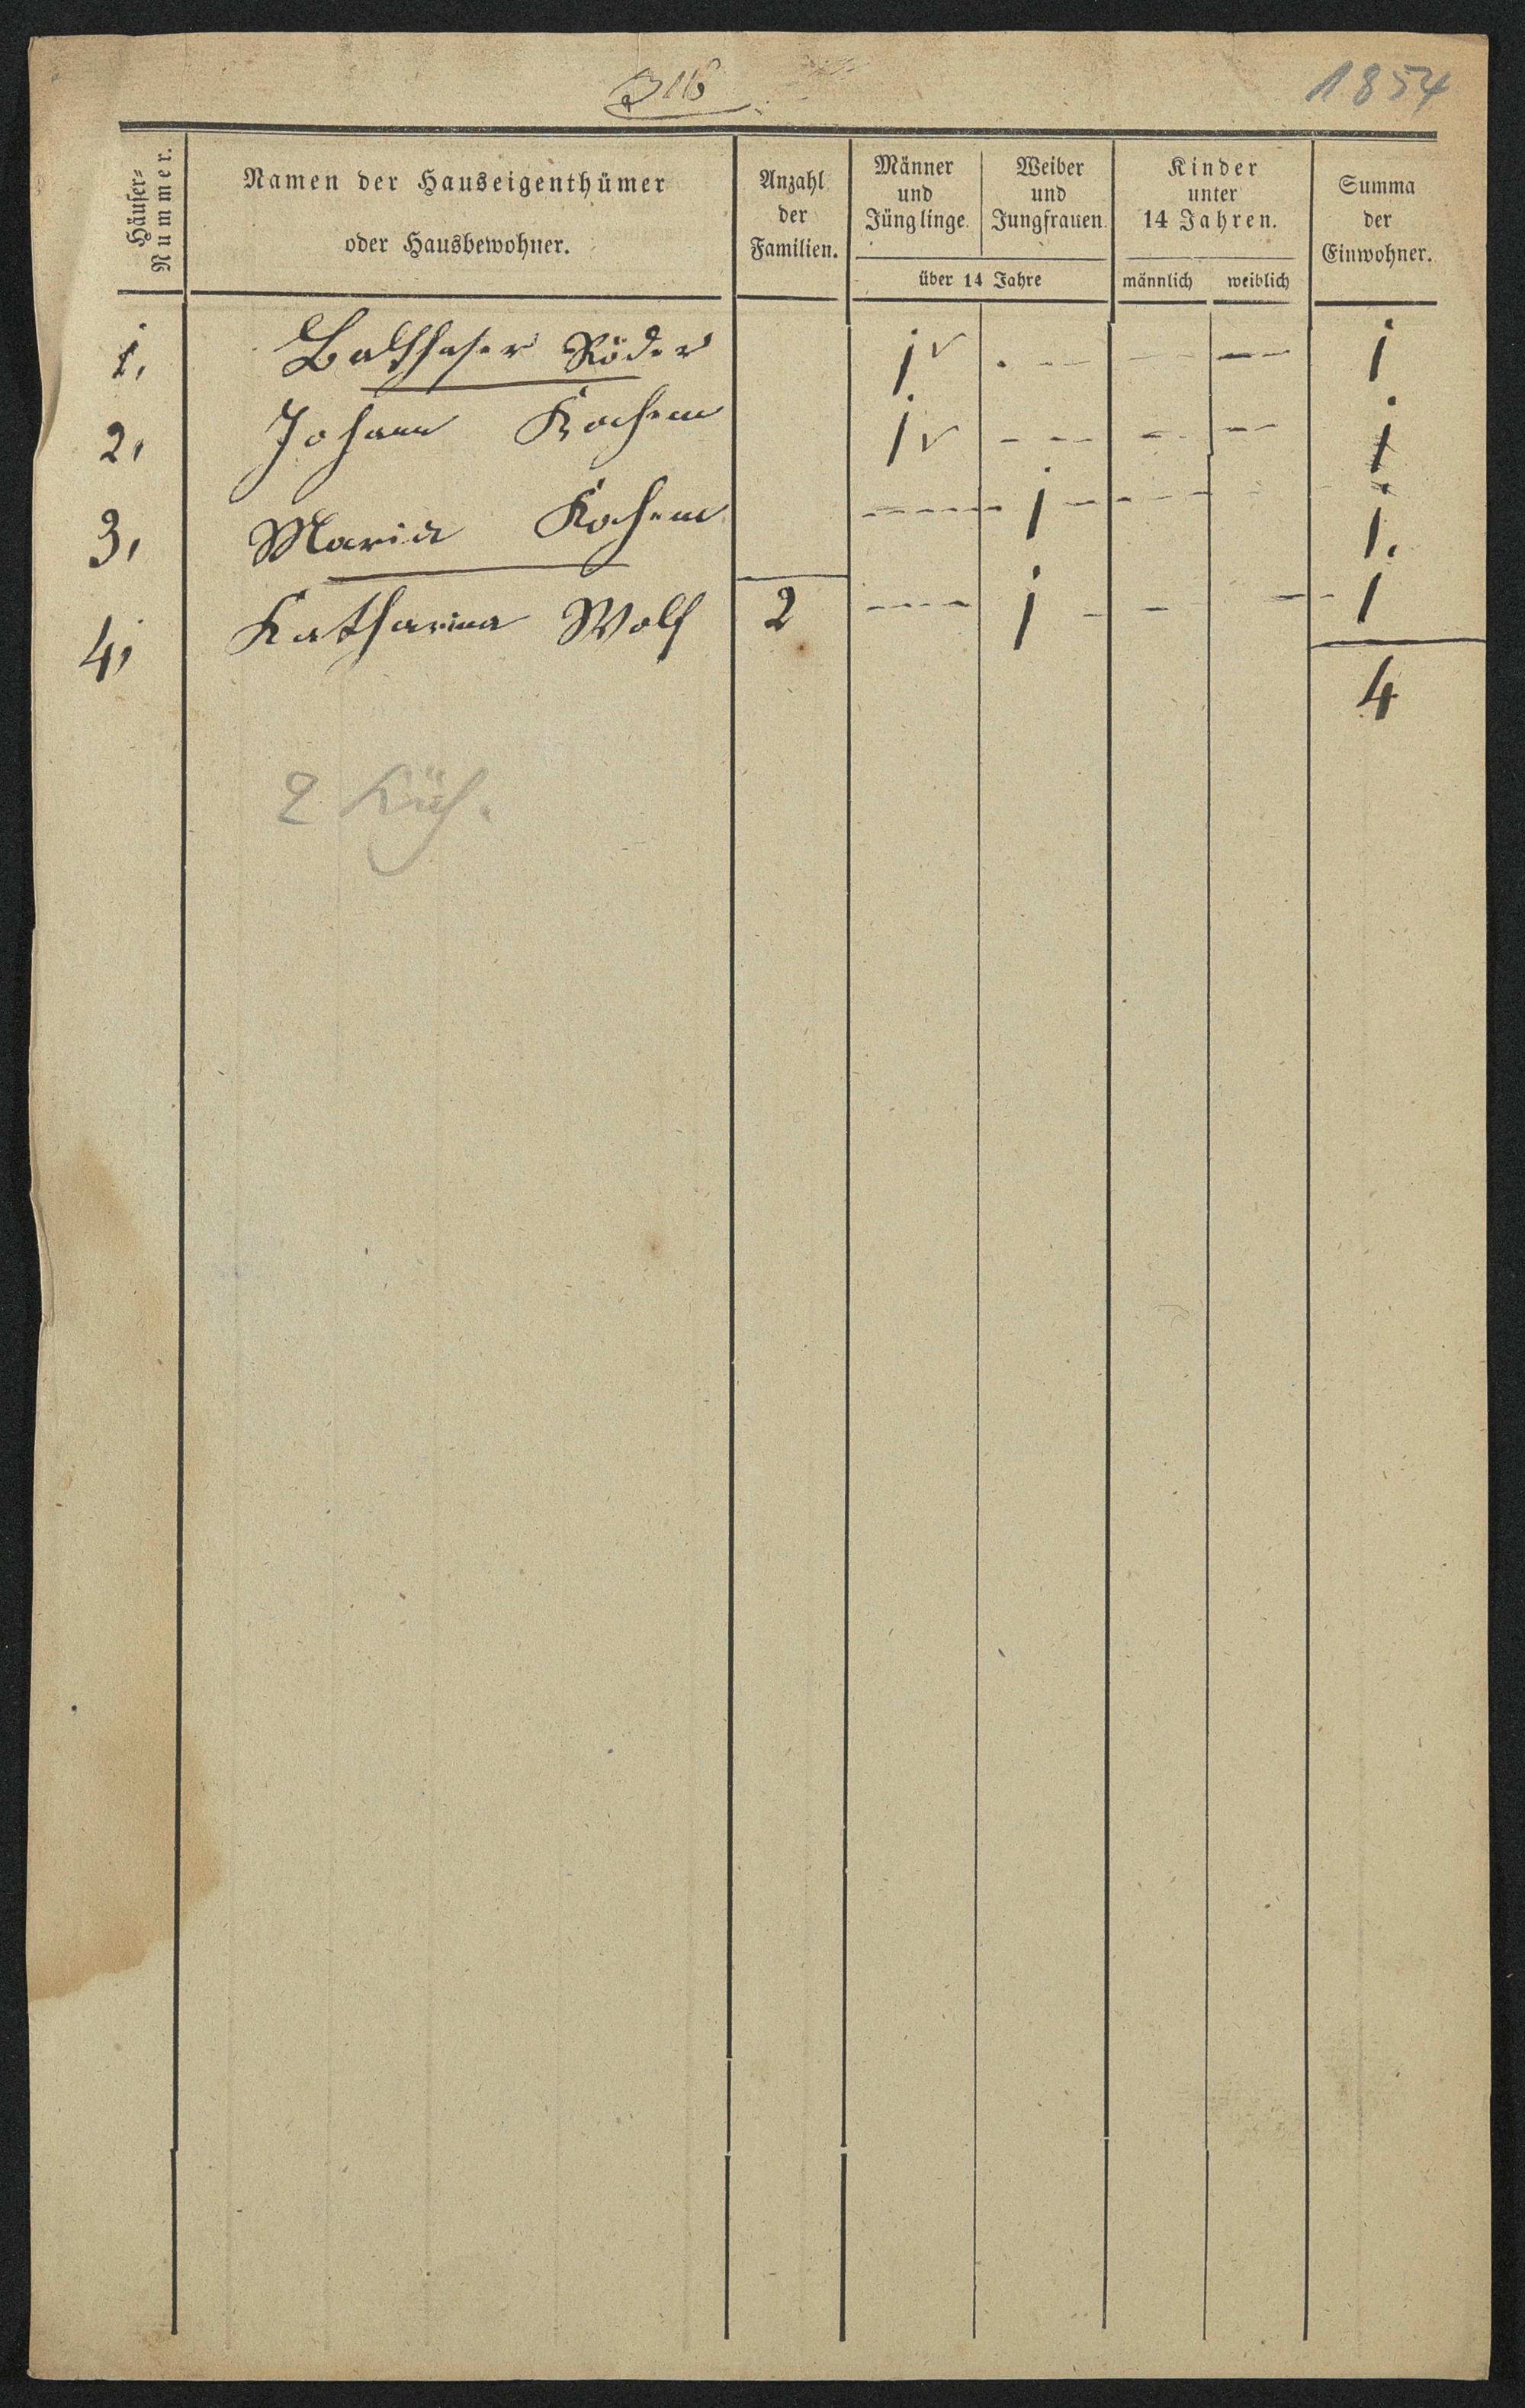 316
1854
Häuser-
Nummer.
Namen der Hauseigenthümer
oder Hausbewohner.
Anzahl
der
Familien.
Männer
und
Jünglinge.
Weiber
und
Jungfrauen.
über 14 Jahre
Kinder
unter
14 Jahren.
männlich weiblich
Summa
der
Einwohner.
1, Balthaser Röder 1 - - - 1
2, Johann Kochem 1 - - - 1
3, Maria Kochem - 1 - - 1.
4, Katharina Wolf 2 - 1 - - 1
4
2 Küh.